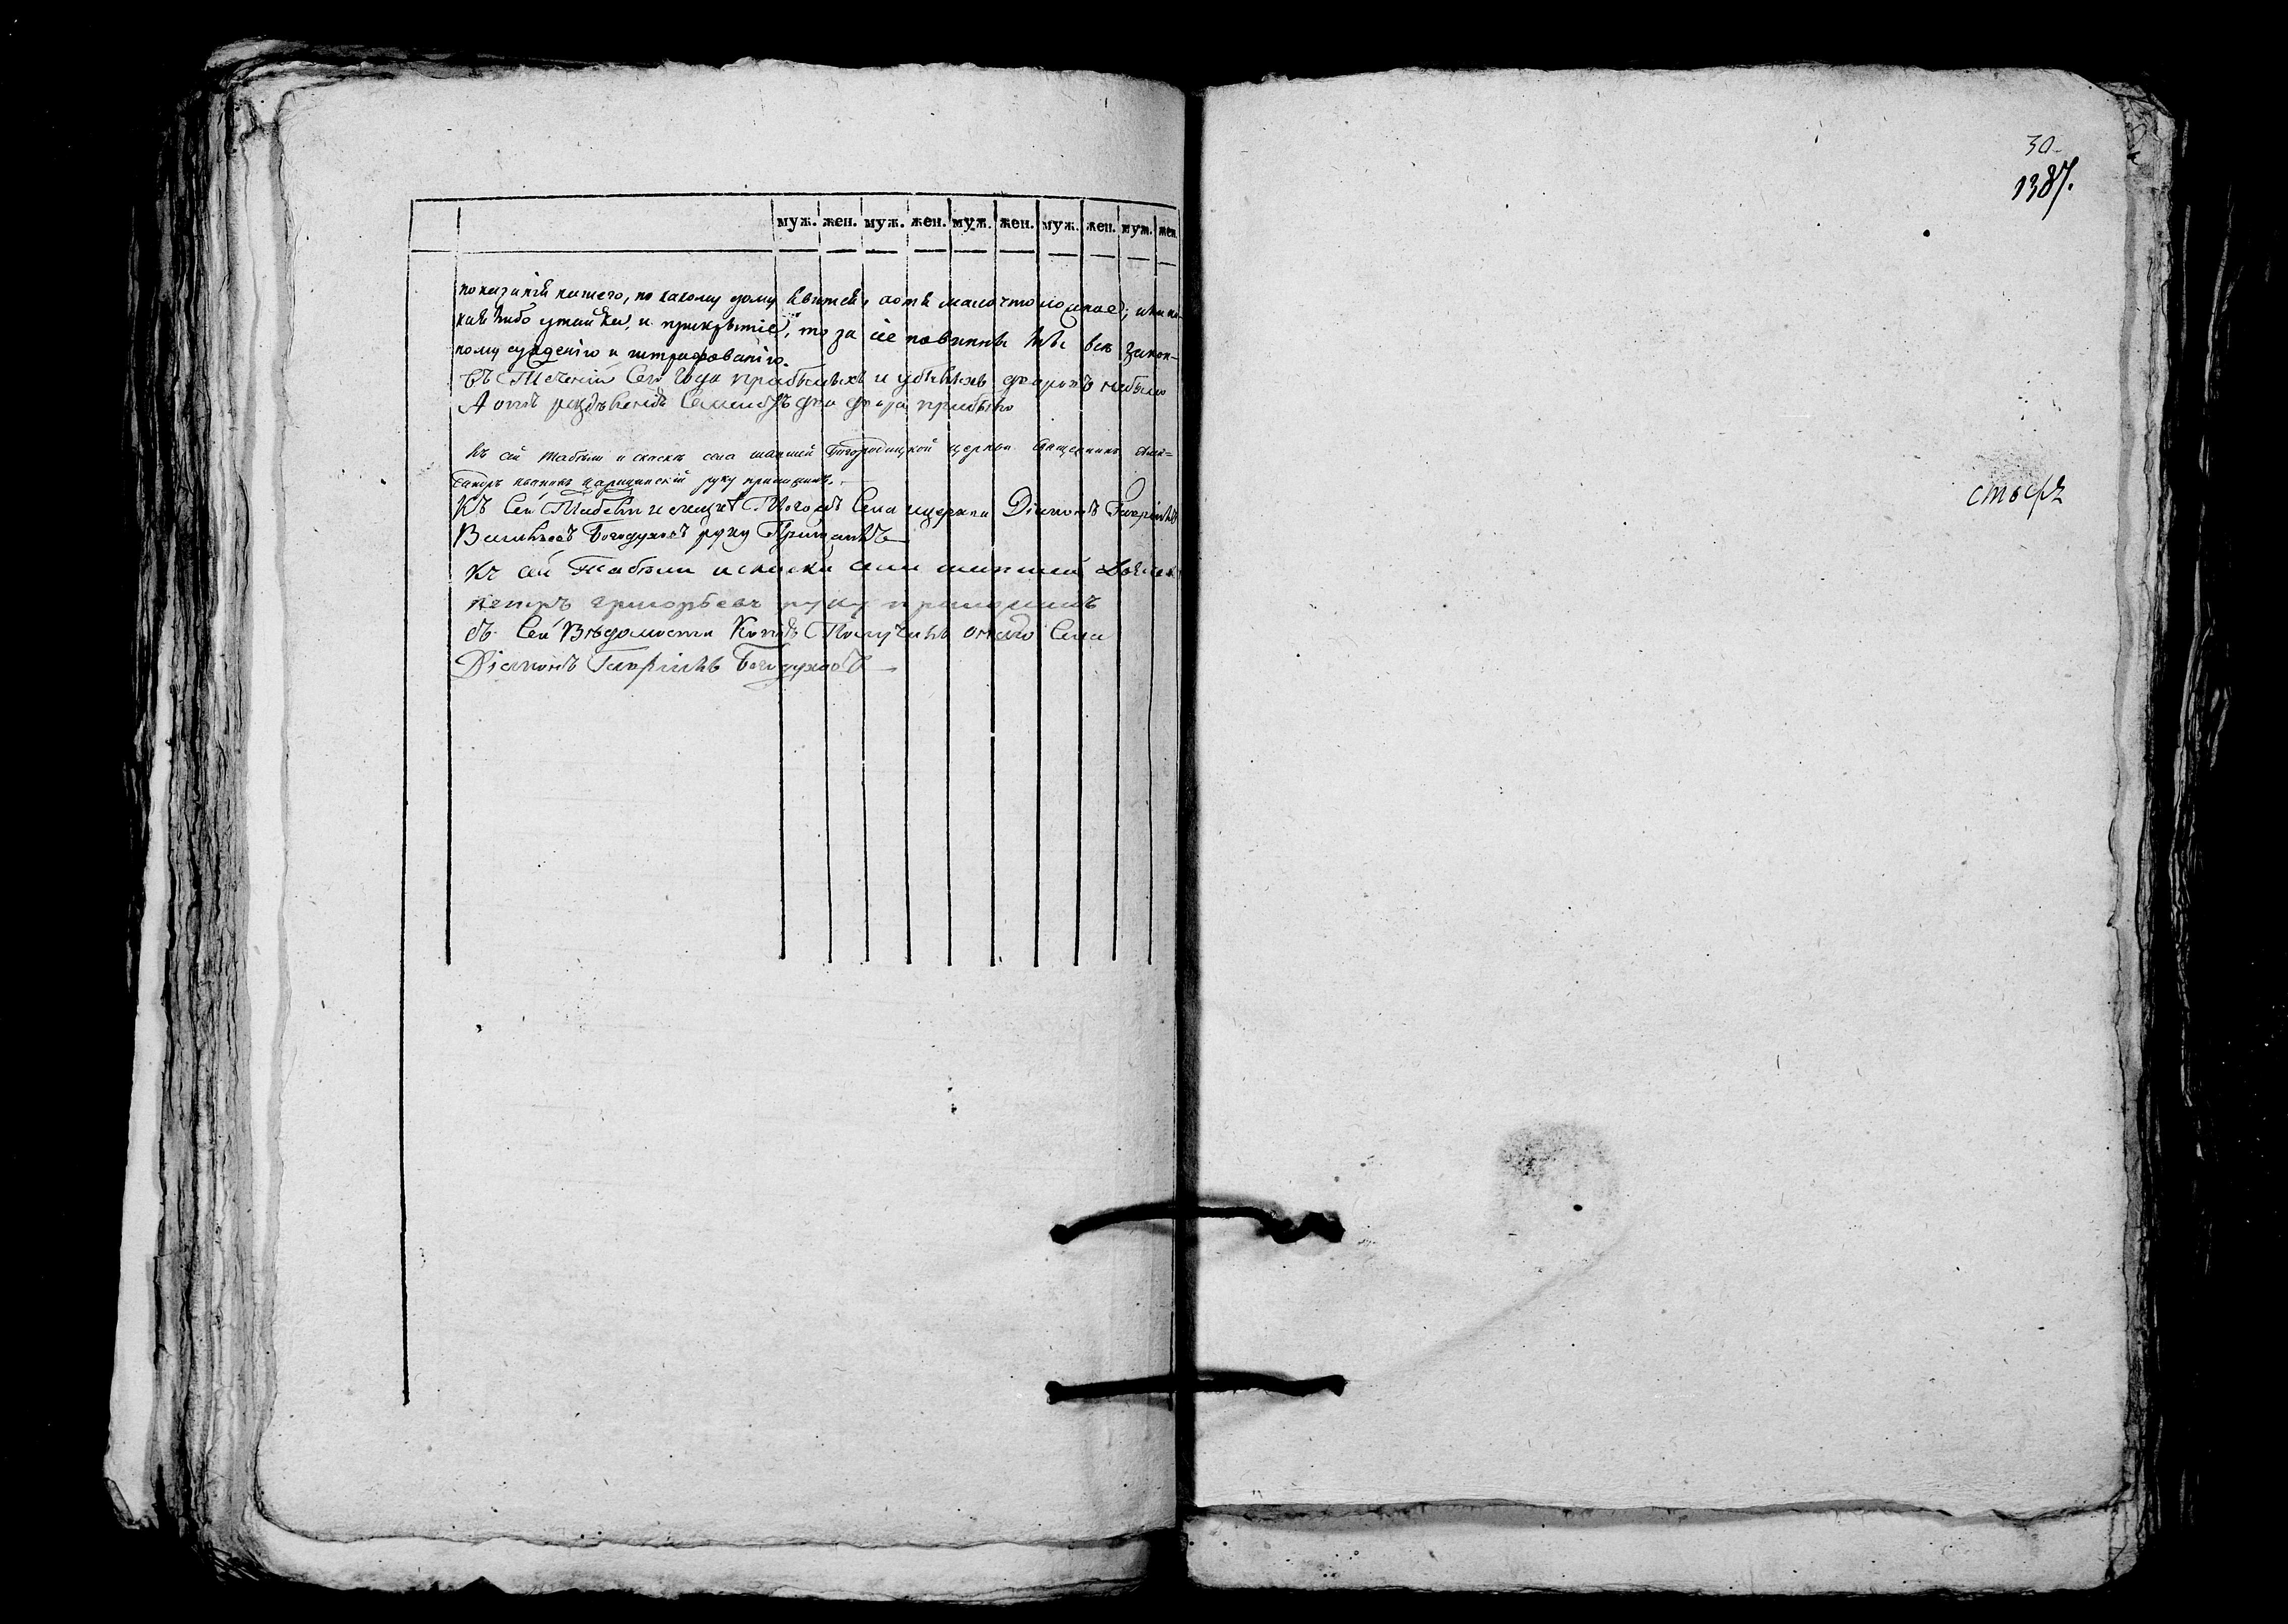 муж. жен. муж. жен. муж. жен. муж. жен. муж. жен.
показанiй нашего, по какому дому явится, хотя мало что ложное; или ка-
кая либо утайка, и прикрытiе, то за сiе повинны мы всѣ закон-
ному суждению и штрафованiю.
Въ Теченiи Сего Года прибылыхъ и убылыхъ дворовъ небыло
А отъ два двора прибыло
Къ сей табели и сказкѣ села Богородицкой церкви Священникъ Алек=
сандръ Ивановъ руку приложилъ.
Къ Сей Табели и сказкѣ Тогожъ Села церкви Дiаконъ Гаврiилъ
Васильевъ Богодуховъ руку Приложилъ
Къ сей Табели и сказки села Дьячекъ
петръ григорьевъ руку приложилъ
Съ Сей Вѣдомости Копiю Получилъ онаго Села
Дiаконъ Гаврiилъ Богодуховъ
30
1387.